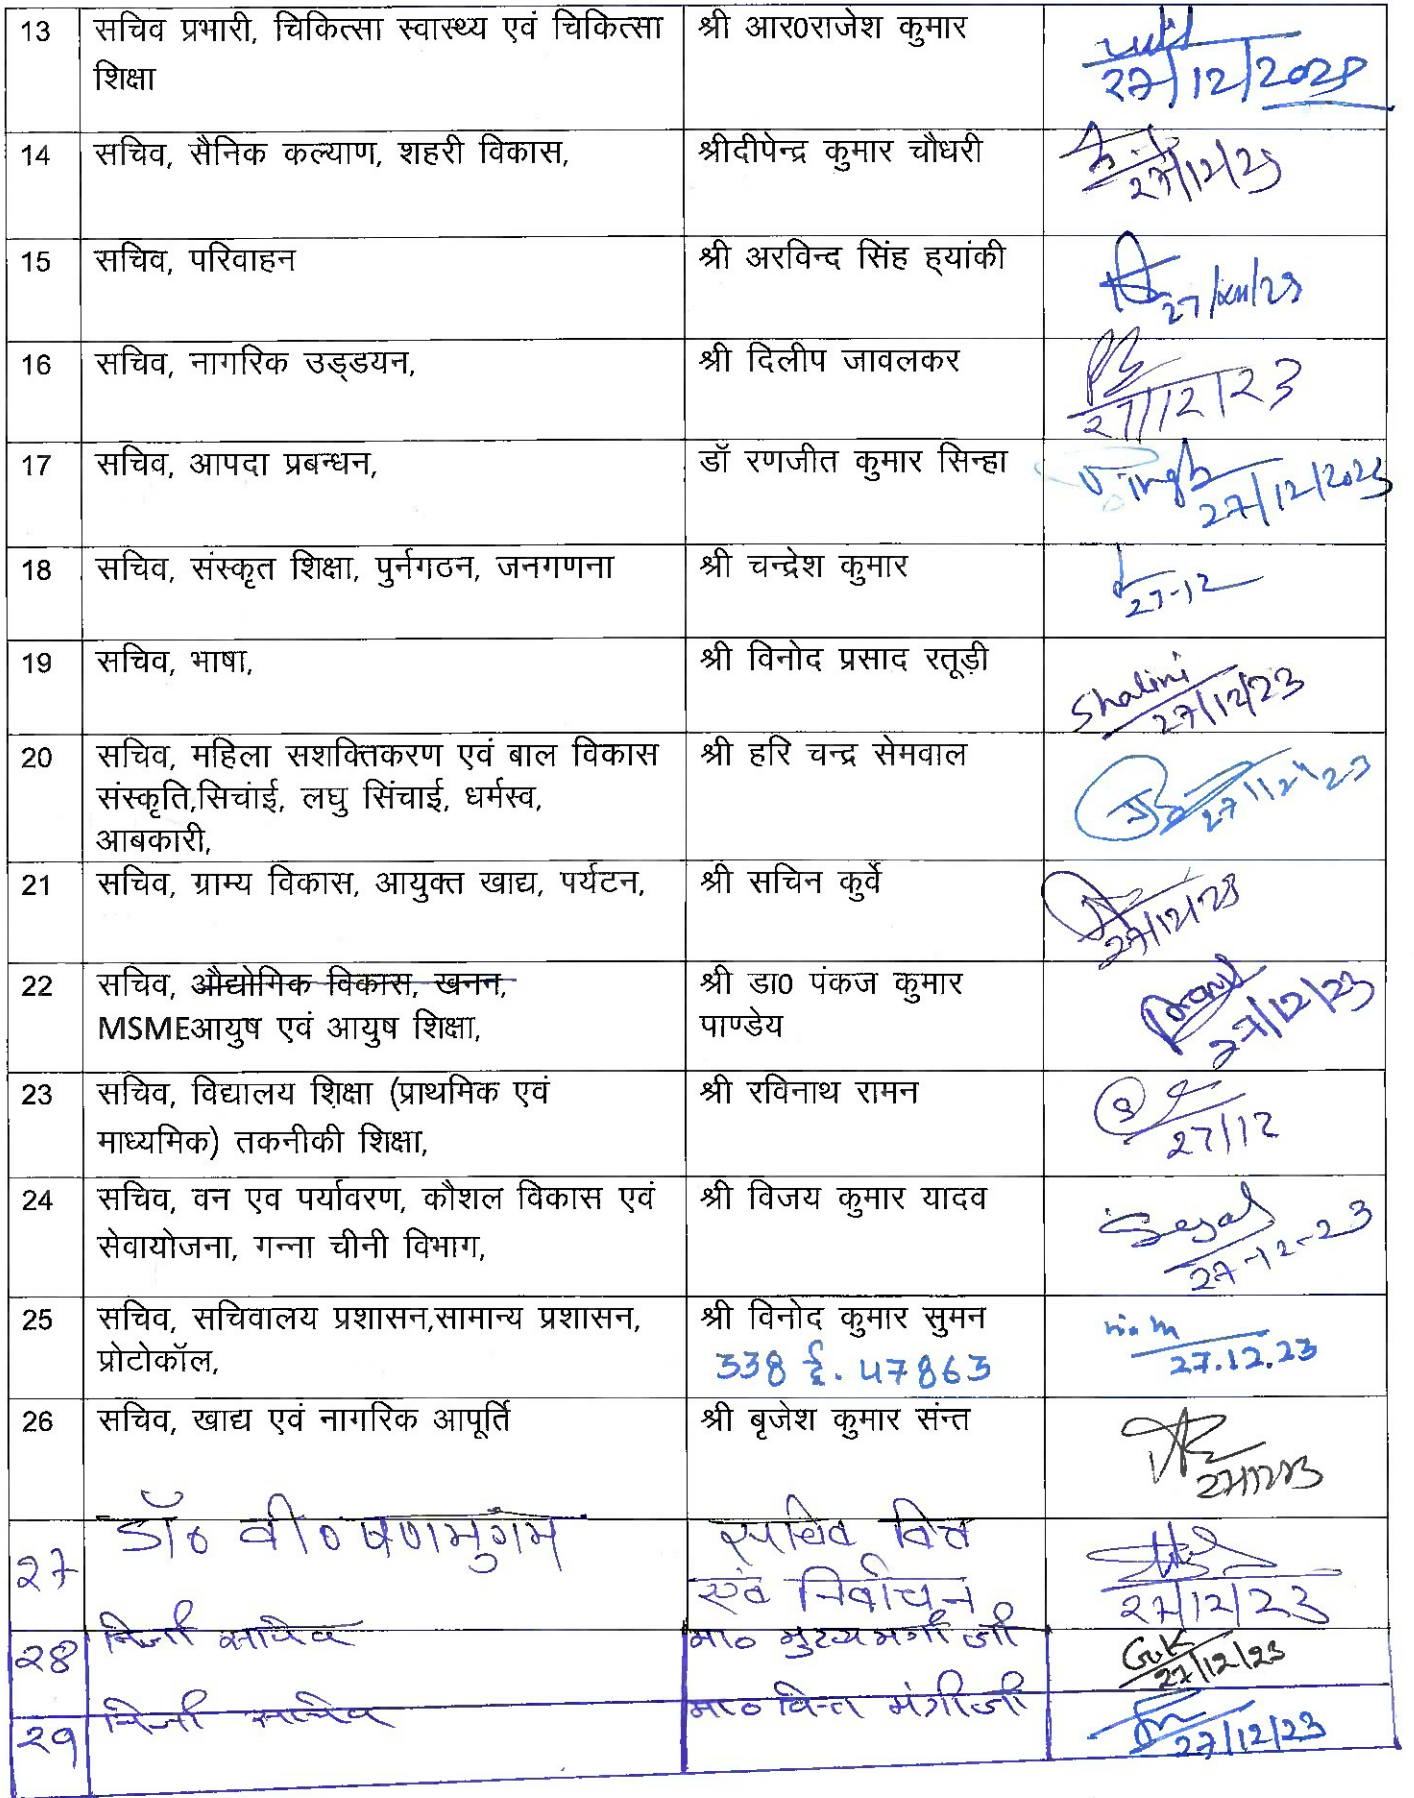 13 सचिव प्रभारी, चिकित्सा स्वास्थ्य एवं चिकित्सा श्री आर0राजेश कुमार
शिक्षा
27/12/2023
14 सचिव, सैनिक कल्याण, शहरी विकास, श्रीदीपेन्द्र कुमार चौधरी
27/12/23
15 सचिव, परिवाहन श्री अरविन्द सिंह ह्यांकी
27/xii/23
16 सचिव, नागरिक उड्डयन, श्री दिलीप जावलकर
27/12/23
17 सचिव, आपदा प्रबन्धन, डॉ रणजीत कुमार सिन्हा
27/12/2023
18 सचिव, संस्कृत शिक्षा, पुर्नगठन, जनगणना श्री चन्द्रेश कुमार
27-12
19 सचिव, भाषा, श्री विनोद प्रसाद रतूड़ी
Shalini
27/12/23
20 सचिव, महिला सशक्तिकरण एवं बाल विकास श्री हरि चन्द्र सेमवाल
संस्कृति,सिचांई, लघु सिंचाई, धर्मस्व, 27/12/23
आबकारी,
21 सचिव, ग्राम्य विकास, आयुक्त खाद्य, पर्यटन, श्री सचिन कुर्वे
27/12/23
22 सचिव, औद्योगिक विकास, खनन, श्री डा0 पंकज कुमार
MSMEआयुष एवं आयुष शिक्षा, पाण्डेय 27/12/23
23 सचिव, विद्यालय शिक्षा (प्राथमिक एवं श्री रविनाथ रामन
माध्यमिक) तकनीकी शिक्षा, 27/12
24 सचिव, वन एव पर्यावरण, कौशल विकास एवं श्री विजय कुमार यादव
सेवायोजना, गन्ना चीनी विभाग, 27-12-23
25 सचिव, सचिवालय प्रशासन,सामान्य प्रशासन, श्री विनोद कुमार सुमन
प्रोटोकॉल, 338 ई. 47863 27.12.23
26 सचिव, खाद्य एवं नागरिक आपूर्ति श्री बृजेश कुमार संन्त
27/12/23
27 डॉ० वी० षणमुगम सचिव वित्त
एवं निर्वाचन 27/12/23
28 निजी सचिव मा० मुख्यमंत्री जी
27/12/23
29 निजी सचिव मा० वित्त मंत्री जी
27/12/23